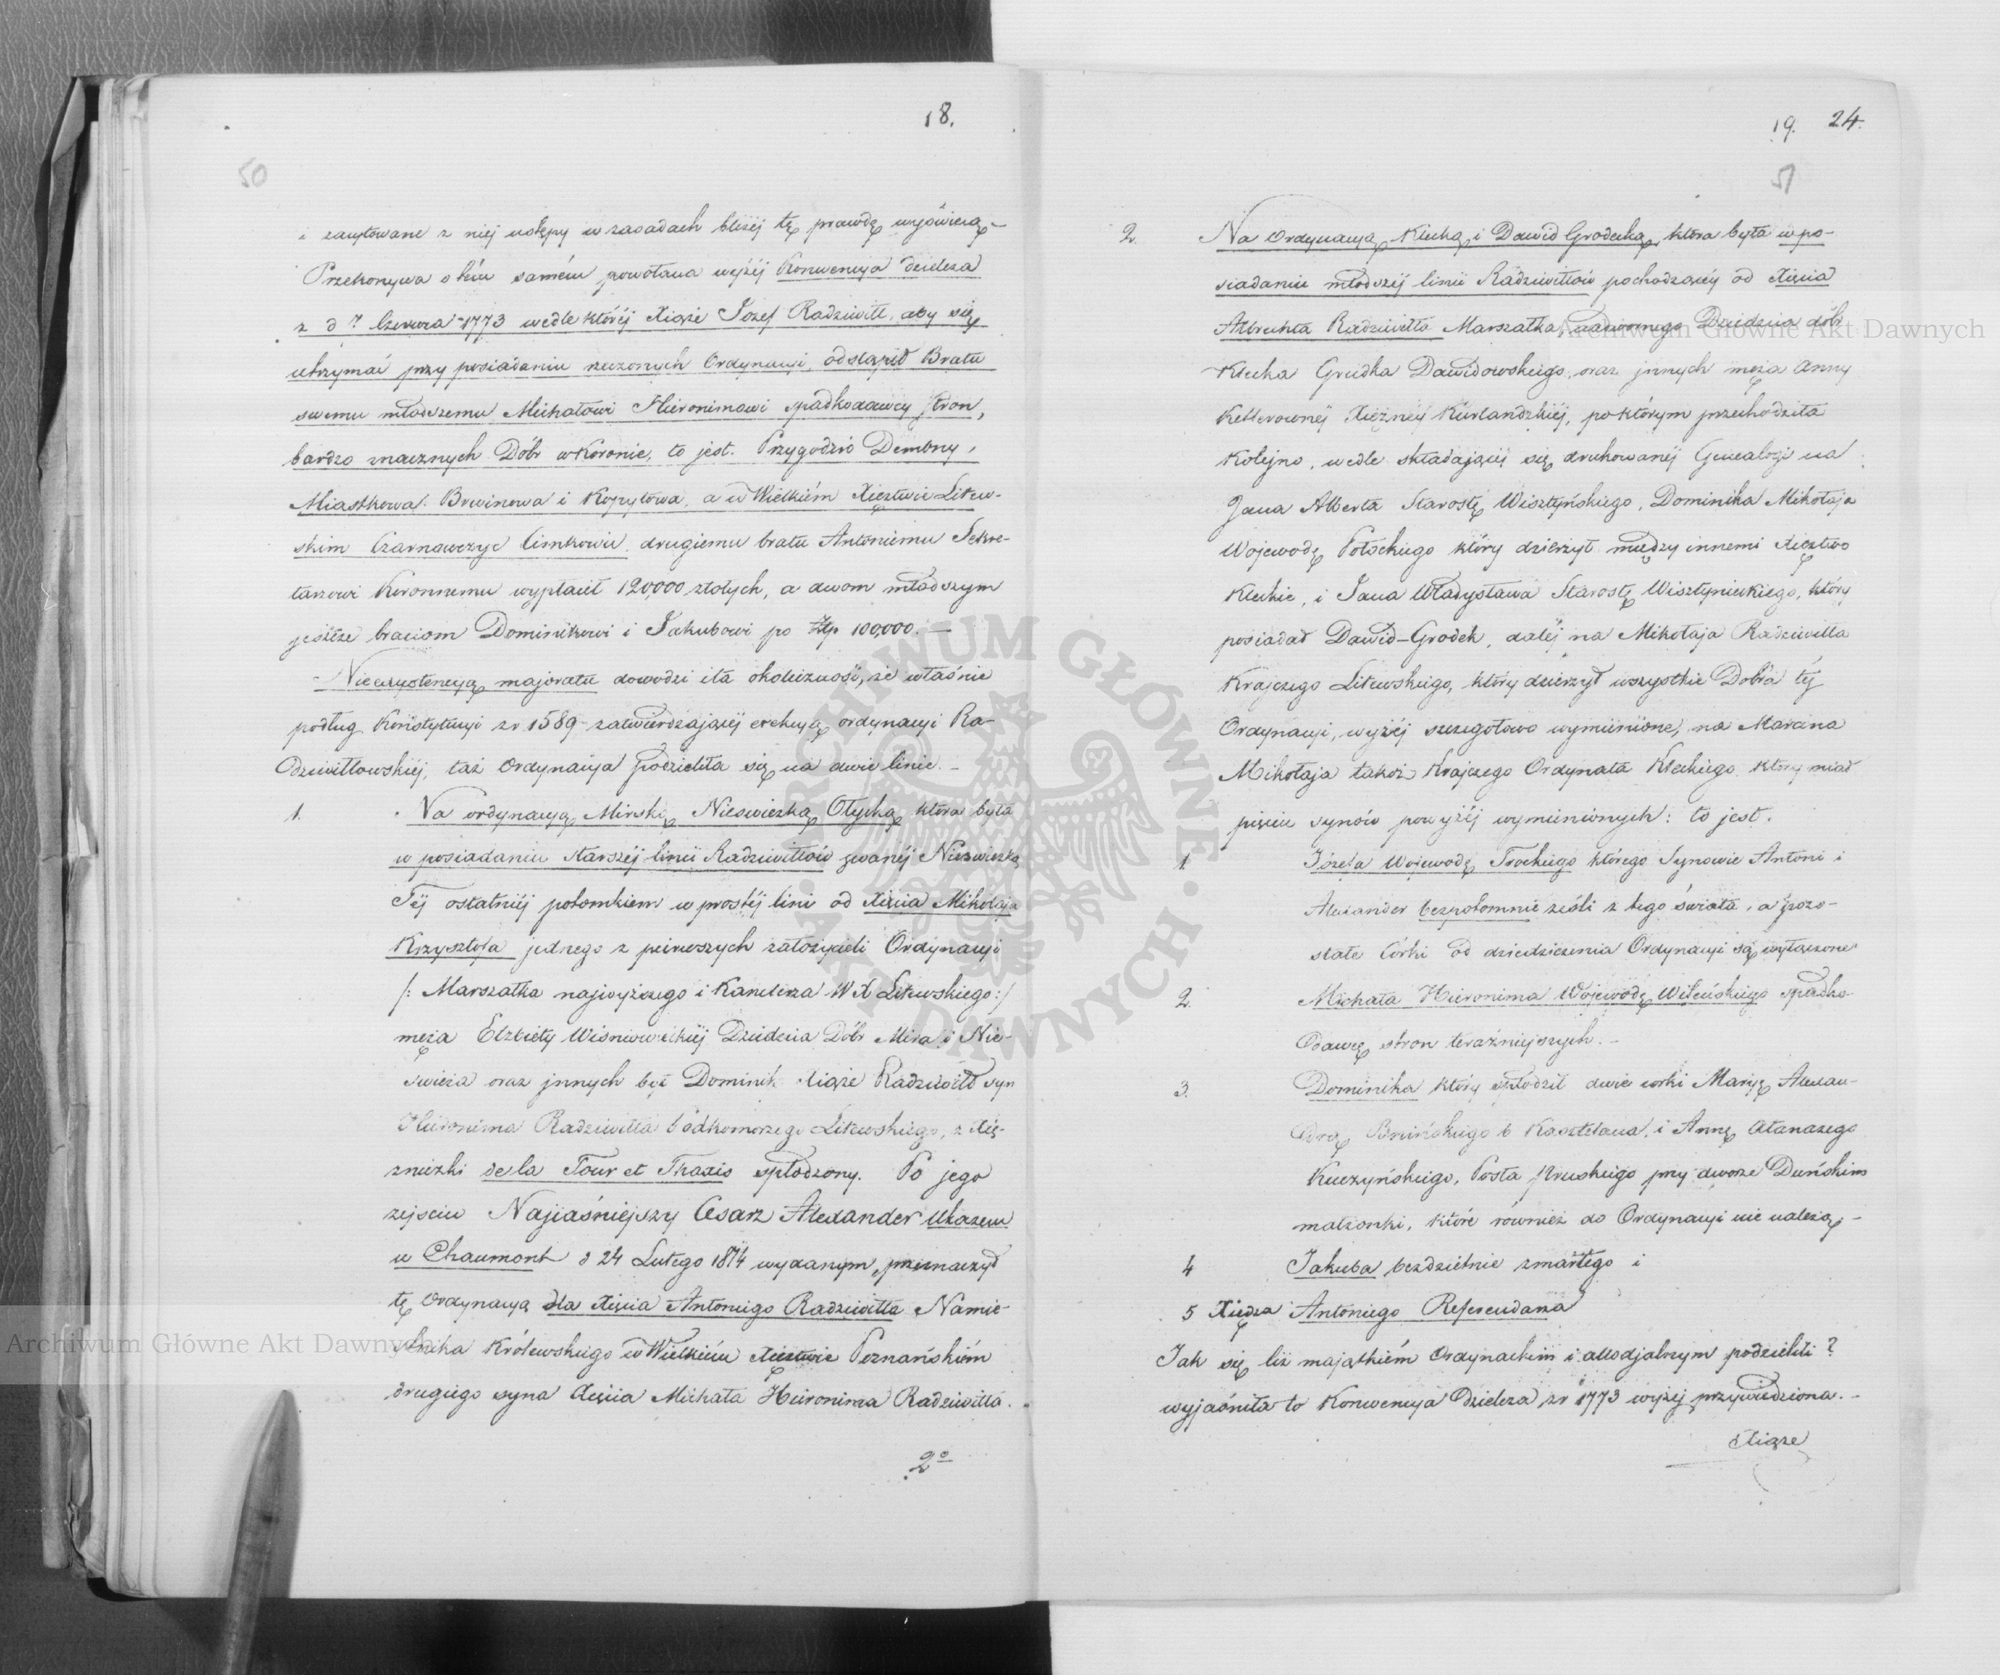 18.
50
i zacytowane z niej ustępy w zasadach bliżej tę prawdę wyświecą –
Przekonywa o tém samém powołana wyżej Konwencya dzielcza
z d 7 Czerwca 1773 wedle któréj Xiąże Józef Radziwiłł, aby się
utrzymać przy posiadaniu rzeczonych Ordynacyi, odstąpił Bratu
swemu młodszemu Michałowi Hieronimowi spadkodawcy stron,
bardzo znacznych Dóbr w Koronie, to jest. Przygodzic Dembny,
Miastkowa. Brwinowa i Kopytowa, a w Wielkiém Xięztwie Litew-
skim Czarnawczyc Cimkowic drugiemu bratu Antoniemu Sekre-
tarzowi Koronnemu wypłacił 120,000 złotych, a dwom młodszym
jeszcze braciom Dominikowi i Jakubowi po Złp 100,000. –
Nieexystencyą majoratu dowodzi i ta okoliczność, że właśnie
podług Konstytucyi z r 1589 zatwierdzającéj erekcyą ordynacyi Ra-
dziwiłłowskiéj, taż Ordynacya podzieliła się na dwie linie. –
1. Na ordynacyą Mirską Nieswiezką Ołycką która była
w posiadaniu starszéj linii Radziwiłłów zwanéj Nieswiezką
Téj ostatniéj potomkiem w prostéj linii od Xięcia Mikołaja
Krzysztofa jednego z pierwszych założycieli Ordynacyi
/: Marszałka najwyższego i Kanclerza W X Litewskiego :/
męża Elżbiety Wiśniowieckiéj Dziedzica Dóbr Mira i Nie-
swieża oraz jnnych był Dominik Xiąże Radziwiłł syn
Hieronima Radziwiłła Podkomorzego Litewskiego, z Xię-
żniczki de la Tour et Thaxis spłodzony. Po jego
zejściu Najjaśniejszy Cesarz Alexander Ukazem
w Chaumont d 24 Lutego 1814 wydanym, przeznaczył
tę Ordynacyą dla Xięcia Antoniego Radziwiłła Namie-
stnika Królewskiego w Wielkiém Xięztwie Poznańskiém
drugiego syna Xięcia Michała Hieronima Radziwiłła.
2º
19. 24.
51
2. Na Ordynacyą Klecką i Dawid Grodecką, która była w po-
siadaniu młodszéj linii Radziwiłłów pochodzącéj od Xięcia
Albrechta Radziwiłła Marszałka nadwornego Dziedzica dóbr
Klecka Grodka Dawidowskiego, oraz jnnych męża Anny
Ketlerownéj Xiężnéj Kurlandzkiéj, po którym przechodziła
Kolejno, wedle składającéj się drukowanéj Genealogi na
Jana Alberta Starostę Wisztyńskiego, Dominika Mikołaja
Wojewodę Połockiego który dzierżył między innemi Xięztwo
Kleckie, i Jana Władysława Starostę Wisztynieckiego, który
posiadał Dawid-Grodek, daléj na Mikołaja Radziwiłła
Krajczego Litewskiego, który dzierżył wszystkie Dobra téj
Ordynacyi, wyżéj szczegółowo wymienione, na Marcina
Mikołaja takoż Krajczego Ordynata Kleckiego który miał
pięciu synów powyżéj wymienionych: to jest.
1. Józefa Wojewodę Trockiego którego Synowie Antoni i
Alexander bezpotomnie zeszli z tego świata, a pozo-
stałe Córki od dziedziczenia Ordynacyi są wyłączone
2. Michała Hieronima Wojewodę Wileńskiego spadko-
dawcę stron teraźniejszych. –
3. Dominika który spłodził dwie córki Maryę Alexan-
dra Bnińskiego b Kasztelana, i Annę Atanazego
Kuczyńskiego, Posła Pruskiego przy dworze Duńskim
małżonki, które również do Ordynacyi nie należą –
4 Jakuba bezdzietnie zmarłego i
5 Xiędza Antoniego Referendarza
Jak się ciż majątkiém Ordynackim i allodjalnym podzielili?
wyjaśniła to Konwencya Dzielcza z r 1773 wyżéj przywiedziona. –
Xiąże
Archiwum Główne Akt Dawnych
Archiwum Główne Akt Dawnych
ARCHIWUM GŁÓWNE AKT DAWNYCH